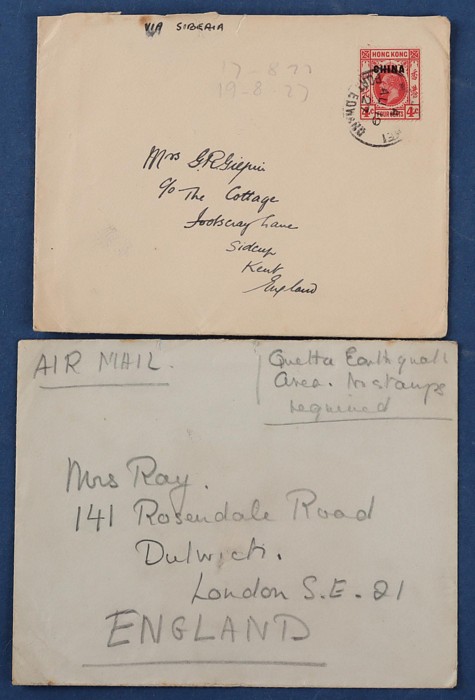 VIA SIBERIA
17-8 27
19-8 27
HONG KONG
CHINA
4c FOUR CENTS 4c
PORT EDWARD
AU 19
Mrs G. R. Gilpin
c/o The Cottage
Footscray Lane
Sidcup
Kent
England
AIR MAIL.
Quetta Earthquake
Area. No stamps
required
Mrs Ray.
141 Rosendale Road
Dulwich.
London S.E. 21
ENGLAND